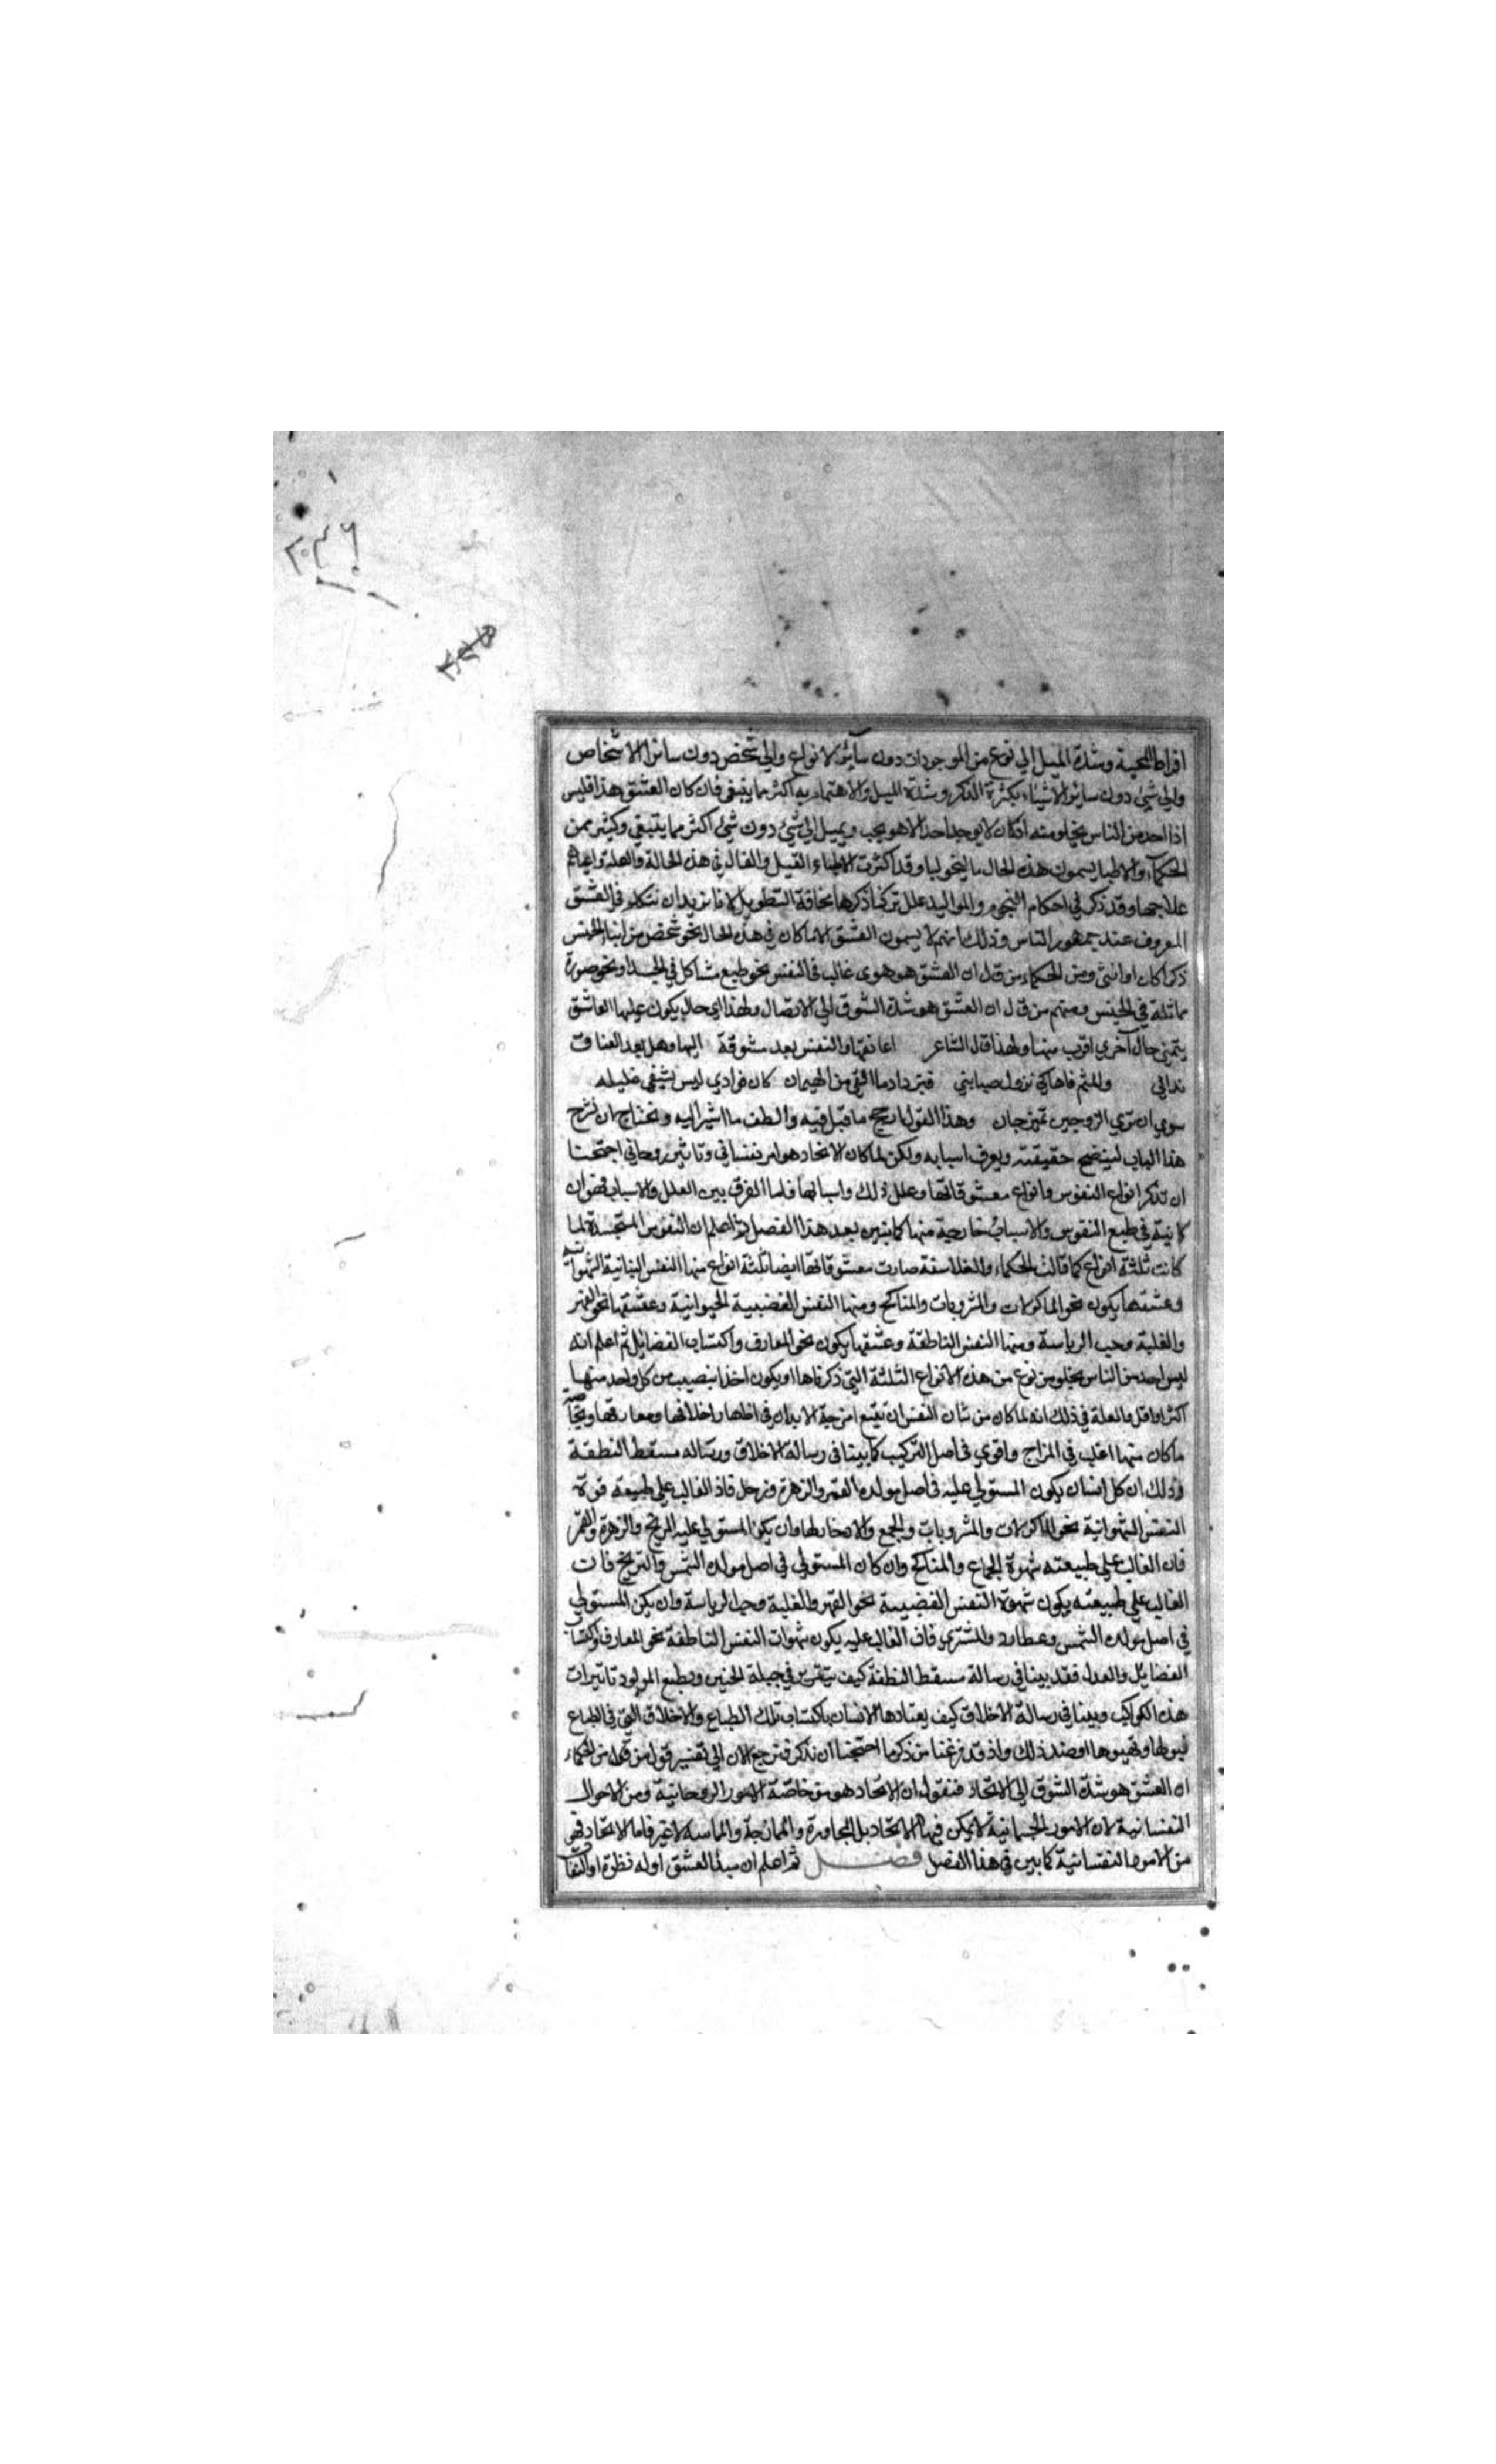 ٢٠٣٦
افراط المحبة وشدة الميل الي نوع من الموجودات دون سائر الانواع والي شخص دون سائر الاشخاص
والي شئ دون سائر الاشياء بكثرة الذكر وشدة الميل والاهتمام به اكثر مما ينبغي فان كان العشق هذا فليس
اذا احد من الناس يخلو منه اذ كان لا يوجد احد الا هو يحب ويميل الي شئ دون شئ اكثر مما ينبغي وكثير من
الحكماء والاطبا يسمون هذه الحال ماليخوليا وقد اكثرت الاطباء القيل والقال في هذه الحالة والعلة واعياهم
علاجها وقد ذكر في احكام النجوم والمواليد علل تركنا ذكرها مخافة التطويل لانا نريد ان نتكلم في العشق
المعروف عند جمهور الناس وذلك انهم لا يسمون العشق الا ما كان في هذه الحال نحو شخص من ابناء الجنس
ذكرا كان او انثي ومن الحكماء من قال ان العشق هو هوي غالب في النفس نحو طبع مشاكل في الجسد او نحو صورة
مماثلة في الجنس ومنهم من قال ان العشق هو شدة الشوق الي الاتصال ولهذا اي حال يكون عليها العاشق
يتمني حال آخري اقرب منها ولهذا قال الشاعر اعانقها والنفس بعد مشوقة اليها وهل بعد العناق
تداني والثم فاها كي تزول صبابتي فيزداد ما القي من الهيمان كان فوادي ليس يشفي غليله
سوي ان تري الزوجين تمتزجان وهذا القول ارجح ما قيل فيه والطف ما اشير اليه ونحتاج ان نشرح
هذا الباب ليتضح حقيقته ويعرف اسبابه ولكن لما كان الاتحاد هو امر نفساني وتاثير روحاني احتجنا
ان نذكر انواع النفوس وانواع معشوقاتها وعلل ذلك واسبابها فاما الفرق بين العلل والاسباب فهو ان
كانية في طبع النفوس والاسباب خارجية منها كما نبين بعد هذا الفصل ثم اعلم ان النفوس المتجسدة لما
كانت ثلثة انواع كما قالت الحكماء والفلاسفة صارت معشوقاتها ايضا ثلثة انواع منها النفس النباتية الشهوانية
وعشقها يكون نحو الماكولات والمشروبات والمناكح ومنها النفس الغضبية الحيوانية وعشقها نحو القهر
والغلبة وحب الرياسة ومنها النفس الناطقة وعشقها يكون نحو المعارف واكتساب الفضايل ثم اعلم انه
ليس احد من الناس يخلو من نوع من هذه الانواع الثلثة التي ذكرناها او يكون اخذا بنصيب من كل واحد منها
اكثر او اقل والعلة في ذلك انه لما كان من شان النفس ان تتبع امزجة الابدان في افعالها واخلاقها ومعارفها وبخاصة
ما كان منها اغلب في المزاج واقوي في اصل التركيب كما بينا في رسالة الاخلاق ورساله مسقط النطفة
وذلك ان كل انسان يكون المستولي عليه في اصل مولده القمر والزهرة وزحل فان الغالب علي طبيعته قوة
النفس الشهوانية نحو الماكولات والمشروبات والجمع والادخار لها وان يكن المستولي عليه المريخ والزهرة والقمر
فان الغالب علي طبيعته شهوة الجماع والمناكح وان كان المستولي في اصل مولده الشمس والمريخ فان
الغالب علي طبيعته يكون شهوة النفس الغضبية نحو القهر والغلبة وحب الرياسة وان يكن المستولي
في اصل مولده الشمس وعطارد والمشتري فان الغالب عليه يكون شهوات النفس الناطقة نحو المعارف واكتساب
الفضايل والعدل فقد بينا في رسالة مسقط النطفة كيف يتقرر في جبلة الجنين وبطبع المولود تاثيرات
هذه الكواكب وبينا في رسالة الاخلاق كيف يعتادها الانسان باكتساب تلك الطباع والاخلاق التي في الطباع
قبولها وتهيوها او ضد ذلك واذ قد فرغنا من ذكر ما احتجنا ان نذكر فنرجع الان الي تفسير قول من قال من الحكماء
ان العشق هو شدة الشوق الي الاتحاد فنقول ان الاتحاد هو من خاصة الامور الروحانية ومن الاحوال
النفسانية لان الامور الجسمانية لا يمكن فيها الاتحاد بل المجاورة والممازجة والمماسة لا غير فاما الاتحاد فهو
من الامور النفسانية كما نبين في هذا الفصل فصل ثم اعلم ان مبدأ العشق اوله نظرة او التفات